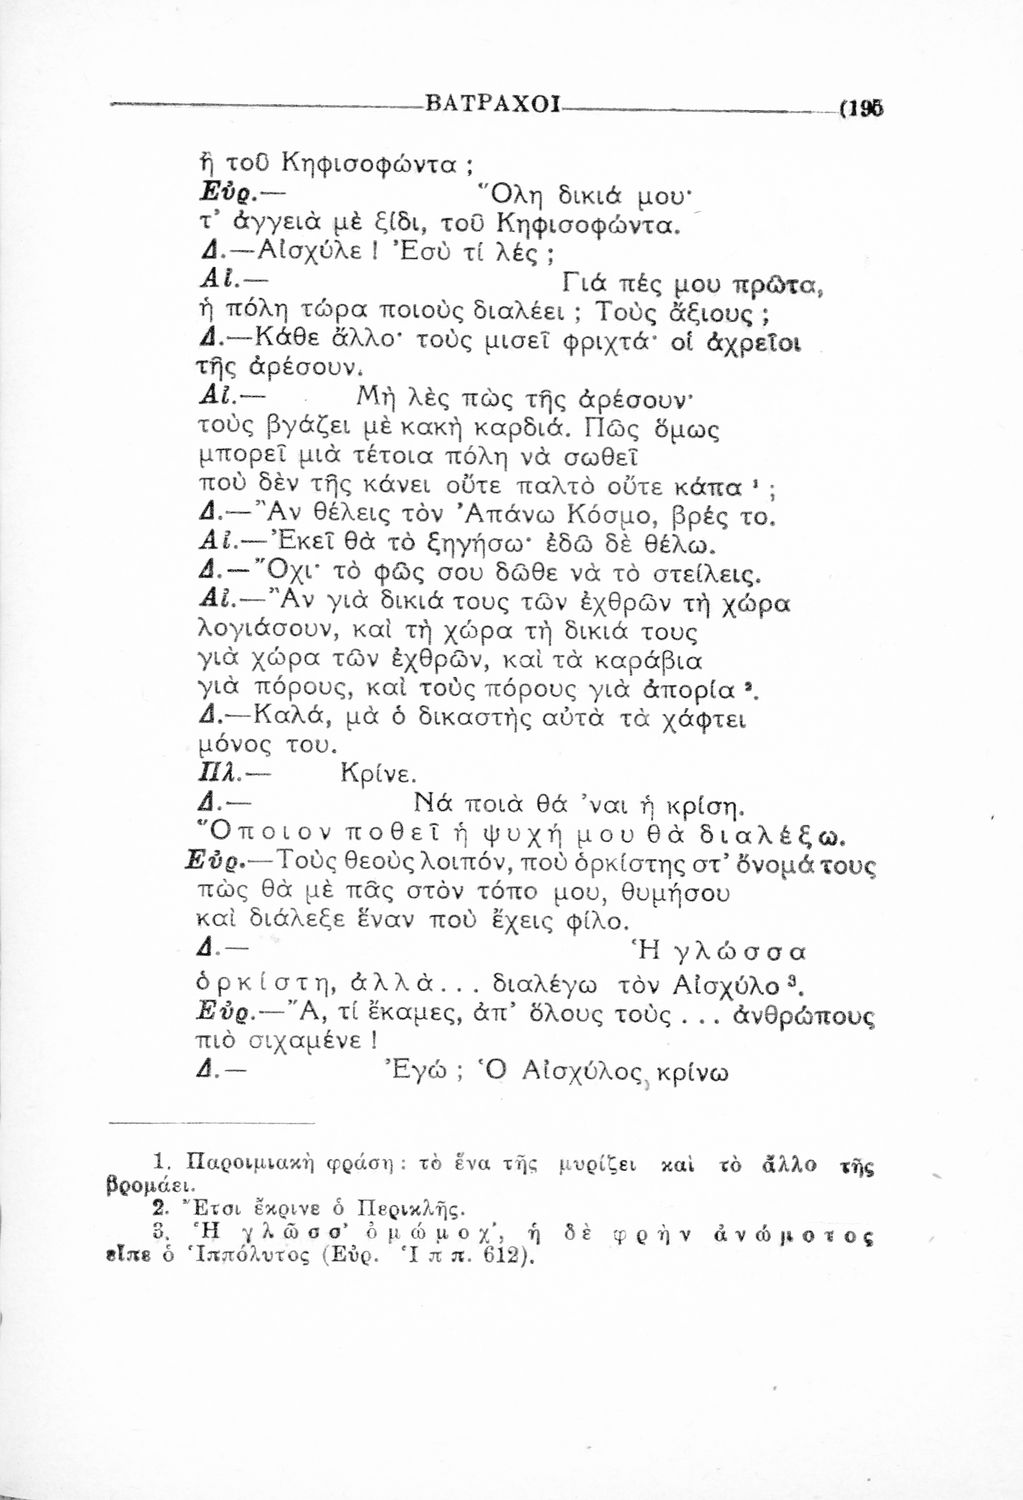 ΒΑΤΡΑΧΟΙ (195
ἢ τοῦ Κηφισοφώντα ;
Εὐρ.— Ὅλη δικιά μου·
τ’ ἀγγειὰ μὲ ξίδι, τοῦ Κηφισοφώντα.
Δ.—Αἰσχύλε ! Ἐσὺ τί λές ;
Αἰ.— Γιά πές μου πρῶτα,
ἡ πόλη τώρα ποιοὺς διαλέει ; Τοὺς ἄξιους ;
Δ.—Κάθε ἄλλο· τοὺς μισεῖ φριχτά· οἱ ἀχρεῖοι
τῆς ἀρέσουν.
Αἰ.— Μὴ λὲς πὼς τῆς ἀρέσουν·
τοὺς βγάζει μὲ κακὴ καρδιά. Πῶς ὅμως
μπορεῖ μιὰ τέτοια πόλη νὰ σωθεῖ
ποὺ δὲν τῆς κάνει οὔτε παλτὸ οὔτε κάπα ¹ ;
Δ.—Ἂν θέλεις τὸν Ἀπάνω Κόσμο, βρές το.
Αἰ.—Ἐκεῖ θὰ τὸ ξηγήσω· ἐδῶ δὲ θέλω.
Δ.—Ὄχι· τὸ φῶς σου δῶθε νὰ τὸ στείλεις.
Αἰ.—Ἂν γιὰ δικιά τους τῶν ἐχθρῶν τὴ χώρα
λογιάσουν, καὶ τὴ χώρα τὴ δικιά τους
γιὰ χώρα τῶν ἐχθρῶν, καὶ τὰ καράβια
γιὰ πόρους, καὶ τοὺς πόρους γιὰ ἀπορία ².
Δ.—Καλά, μὰ ὁ δικαστὴς αὐτὰ τὰ χάφτει
μόνος του.
Πλ.— Κρίνε.
Δ.— Νά ποιὰ θά ’ναι ἡ κρίση.
Ὅποιον ποθεῖ ἡ ψυχή μου θὰ διαλέξω.
Εὐρ.—Τοὺς θεοὺς λοιπόν, ποὺ ὁρκίστης στ’ ὄνομά τους
πὼς θὰ μὲ πᾶς στὸν τόπο μου, θυμήσου
καὶ διάλεξε ἕναν ποὺ ἔχεις φίλο.
Δ.— Ἡ γλώσσα
ὁρκίστη, ἀλλὰ... διαλέγω τὸν Αἰσχύλο ³.
Εὐρ.—Ἄ, τί ἔκαμες, ἀπ’ ὅλους τοὺς ... ἀνθρώπους
πιὸ σιχαμένε !
Δ.— Ἐγώ ; Ὁ Αἰσχύλος, κρίνω
1. Παροιμιακὴ φράση : τὸ ἕνα τῆς μυρίζει καὶ τὸ ἄλλο τῆς
βρομάει.
2. Ἔτσι ἔκρινε ὁ Περικλῆς.
3. Ἡ γλῶσσ’ ὀμώμοχ’, ἡ δὲ φρὴν ἀνώμοτος
εἶπε ὁ Ἱππόλυτος (Εὐρ. Ἱππ. 612).